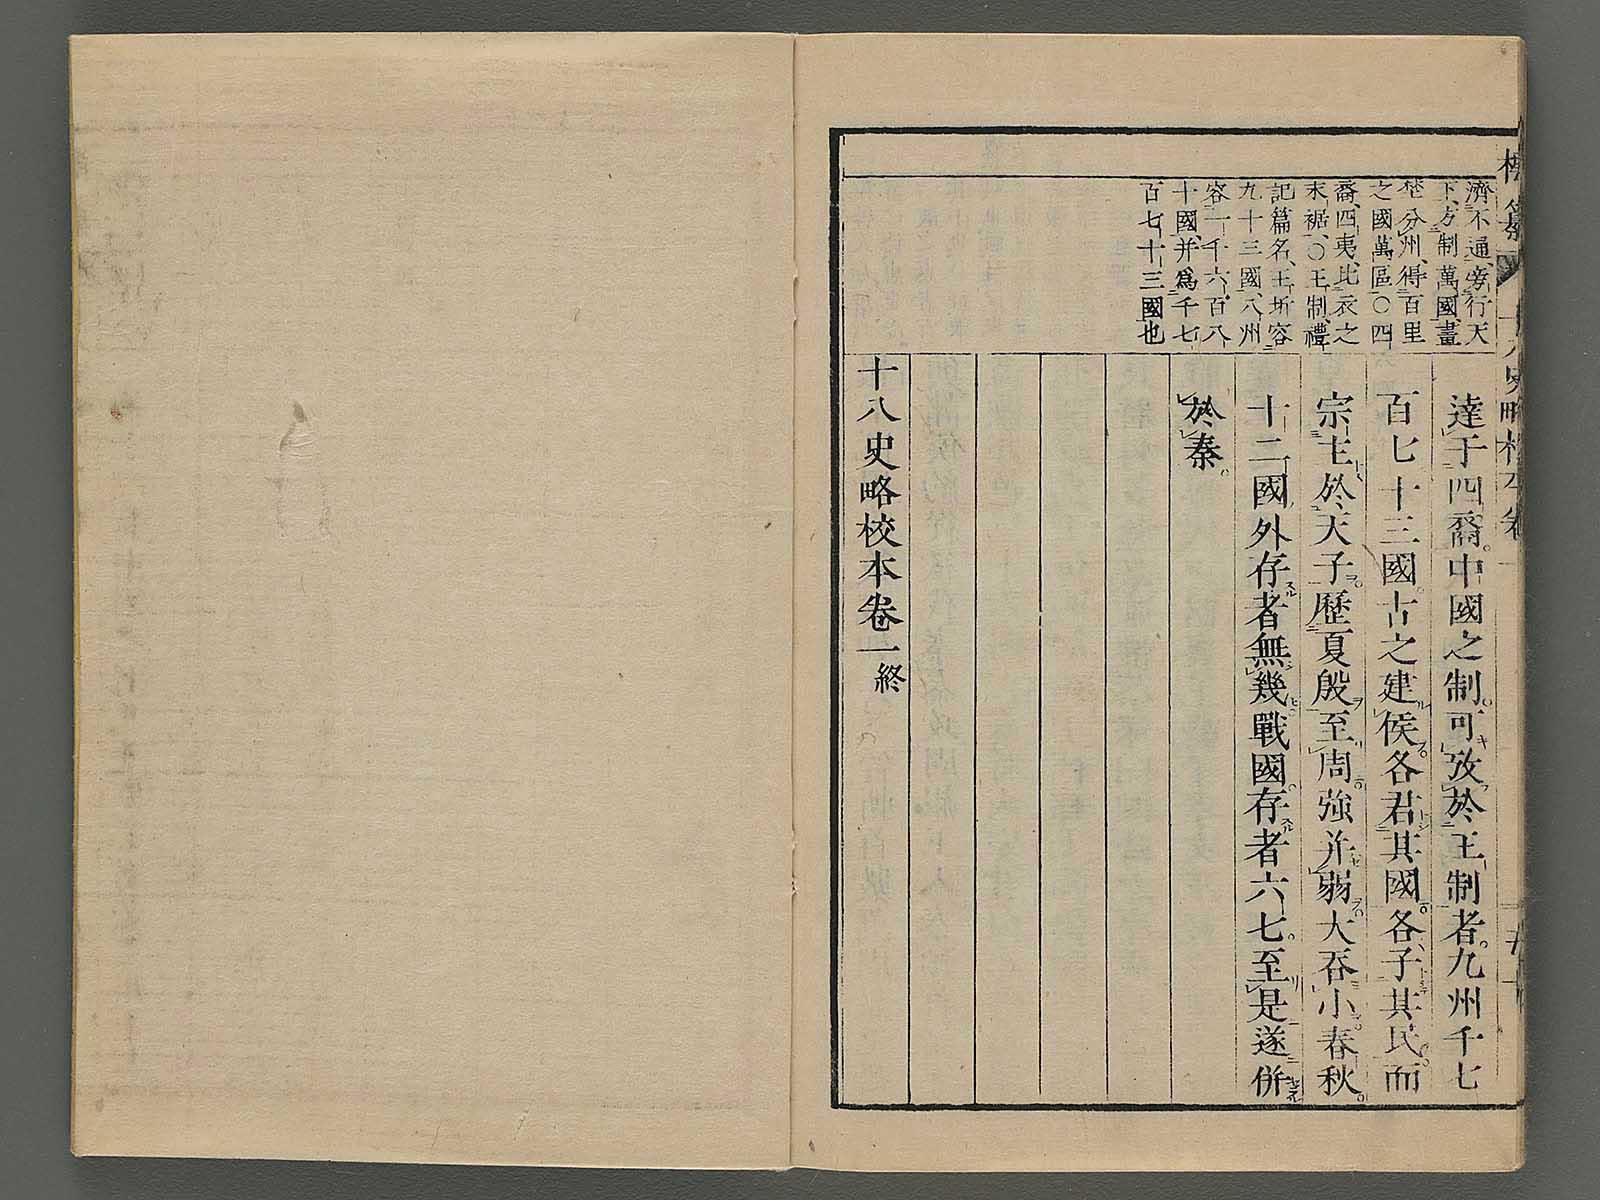 濟不通、旁行天
下、方制萬國、畫
埜分州、得百里
之國萬區〇四
裔、四夷、比衣之
末裾、〇王制、禮
記篇名、王圻容
九十三國、八州
容一千六百八
十國、并爲千七
百七十三國也
達于四裔。中國之制。可攷於王制者。九州千七
百七十三國。古之建侯。各君其國。各子其民。而
宗主於天子。歷夏殷至周。強并弱。大吞小。春秋。
十二國外存者無幾。戰國。存者六七。至是遂併
於秦。
十八史略校本卷一終